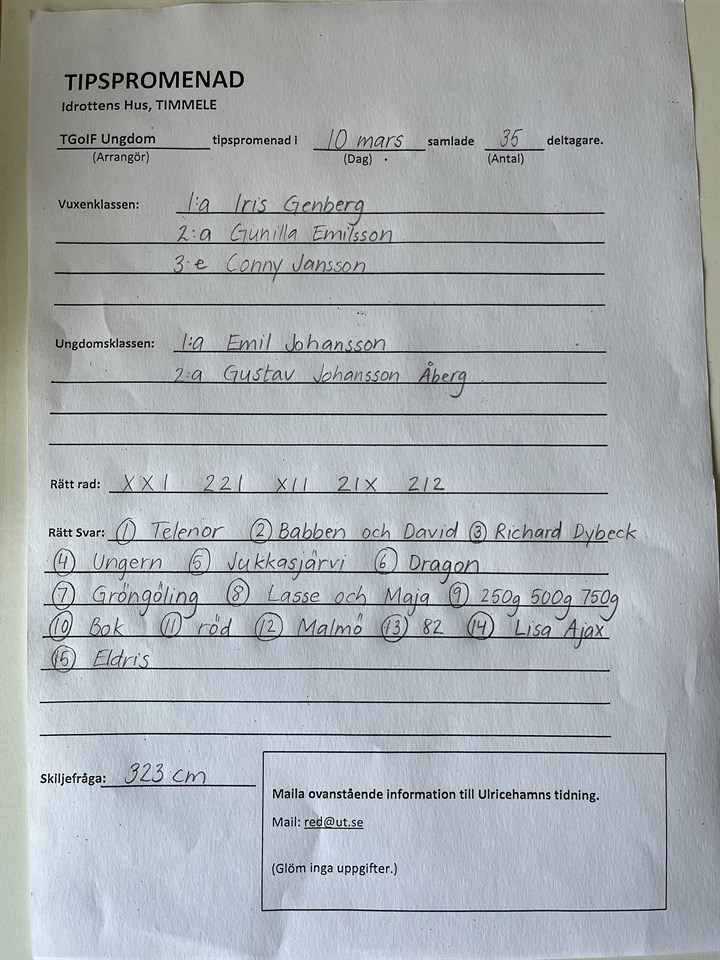 TIPSPROMENAD
Idrottens Hus, TIMMELE
TGoIF Ungdom tipspromenad i 10 mars samlade 35 deltagare.
(Arrangör) (Dag) (Antal)
Vuxenklassen: 1:a Iris Genberg
2:a Gunilla Emilsson
3:e Conny Jansson
Ungdomsklassen: 1:a Emil Johansson
2:a Gustav Johansson Åberg
Rätt rad: XX1 221 X11 21X 212
Rätt Svar: ① Telenor ② Babben och David ③ Richard Dybeck
④ Ungern ⑤ Jukkasjärvi ⑥ Dragon
⑦ Gröngöling ⑧ Lasse och Maja ⑨ 250g 500g 750g
⑩ Bok ⑪ röd ⑫ Malmö ⑬ 82 ⑭ Lisa Ajax
⑮ Eldris
Skiljefråga: 323 cm
Maila ovanstående information till Ulricehamns tidning.
Mail: red@ut.se
(Glöm inga uppgifter.)